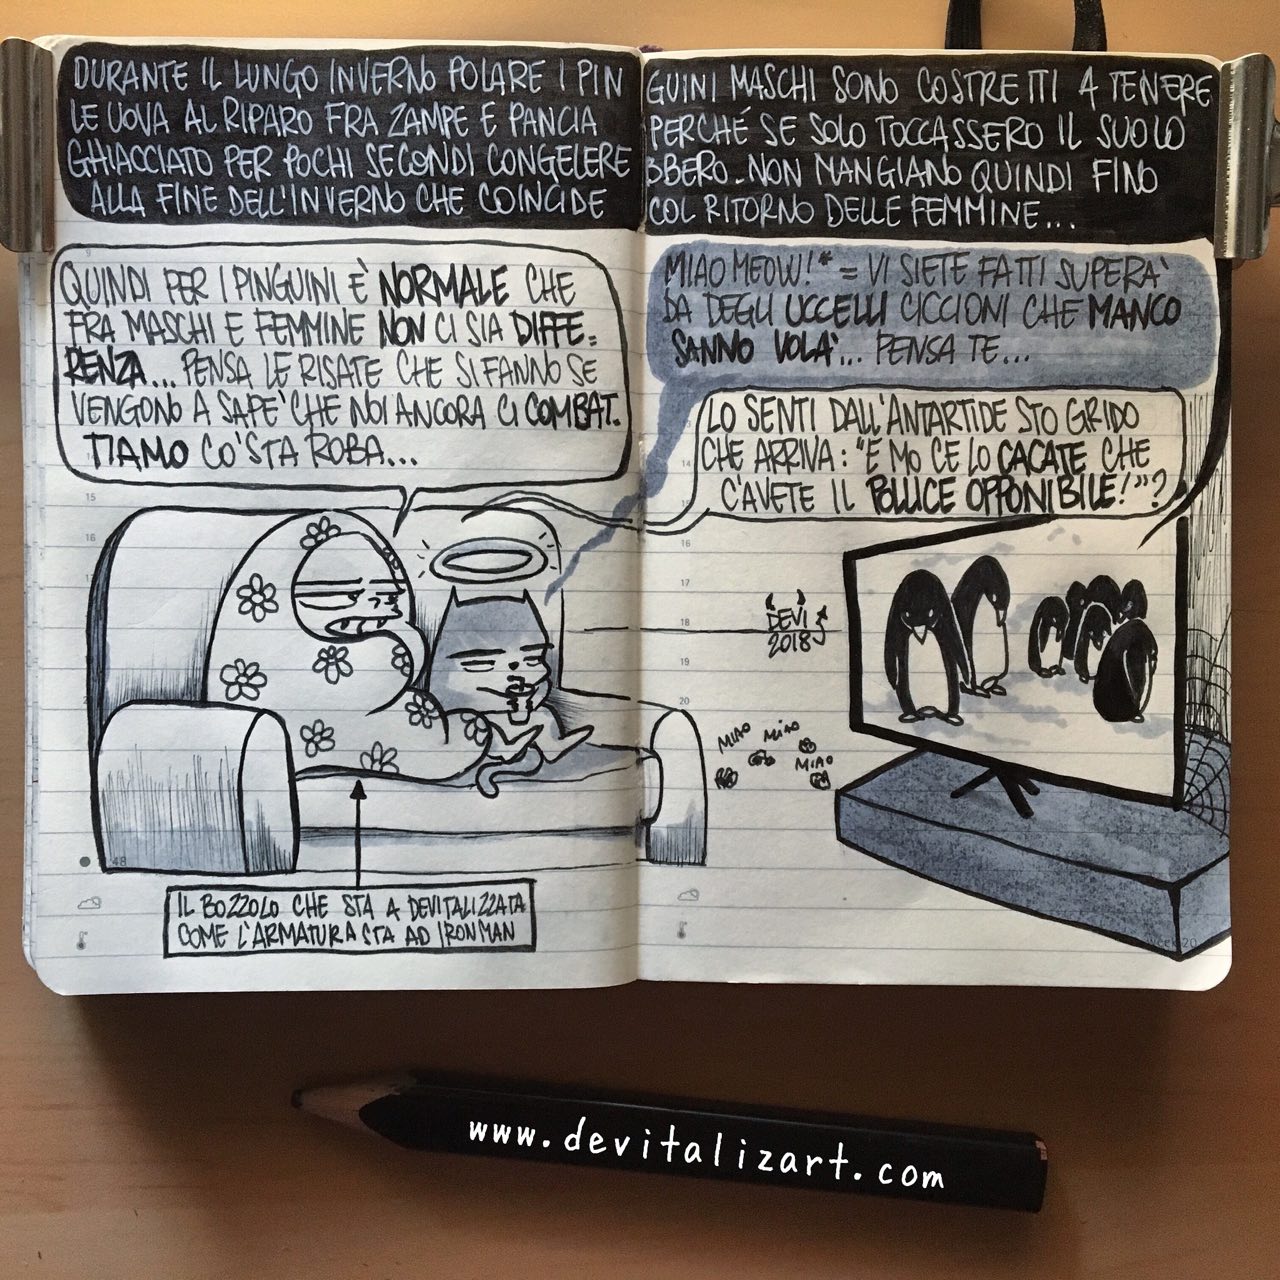 DURANTE IL LUNGO INVERNO POLARE I PINGUINI MASCHI SONO COSTRETTI A TENERE
LE UOVA AL RIPARO FRA ZAMPE E PANCIA PERCHÉ SE SOLO TOCCASSERO IL SUOLO
GHIACCIATO PER POCHI SECONDI CONGELEREBBERO. NON MANGIANO QUINDI FINO
ALLA FINE DELL'INVERNO CHE COINCIDE COL RITORNO DELLE FEMMINE...
QUINDI PER I PINGUINI È NORMALE CHE
FRA MASCHI E FEMMINE NON CI SIA DIFFE=
RENZA... PENSA LE RISATE CHE SI FANNO SE
VENGONO A SAPE' CHE NOI ANCORA CI COMBAT.
TIAMO CO' STA ROBA...
MIAO MEOW!* = VI SIETE FATTI SUPERA'
DA DEGLI UCCELLI CICCIONI CHE MANCO
SANNO VOLA'... PENSA TE...
LO SENTI DALL'ANTARTIDE STO GRIDO
CHE ARRIVA: "E MO CE LO CACATE CHE
C'AVETE IL POLLICE OPPONIBILE!"?
DEVI
2018
MIAO MIAO
MIAO
IL BOZZOLO CHE STA A DEVITALIZZATA
COME L'ARMATURA STA AD IRONMAN
9
15
16
14
16
17
18
19
20
48
WEEK 20
www.devitalizart.com